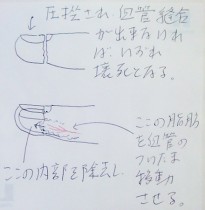 圧挫され、血管縫合
が出来ないれ
ば、いずれ
壊死となる。
この脂肪
を血管の
ついたまま
移動
させる。
この内部を除去し